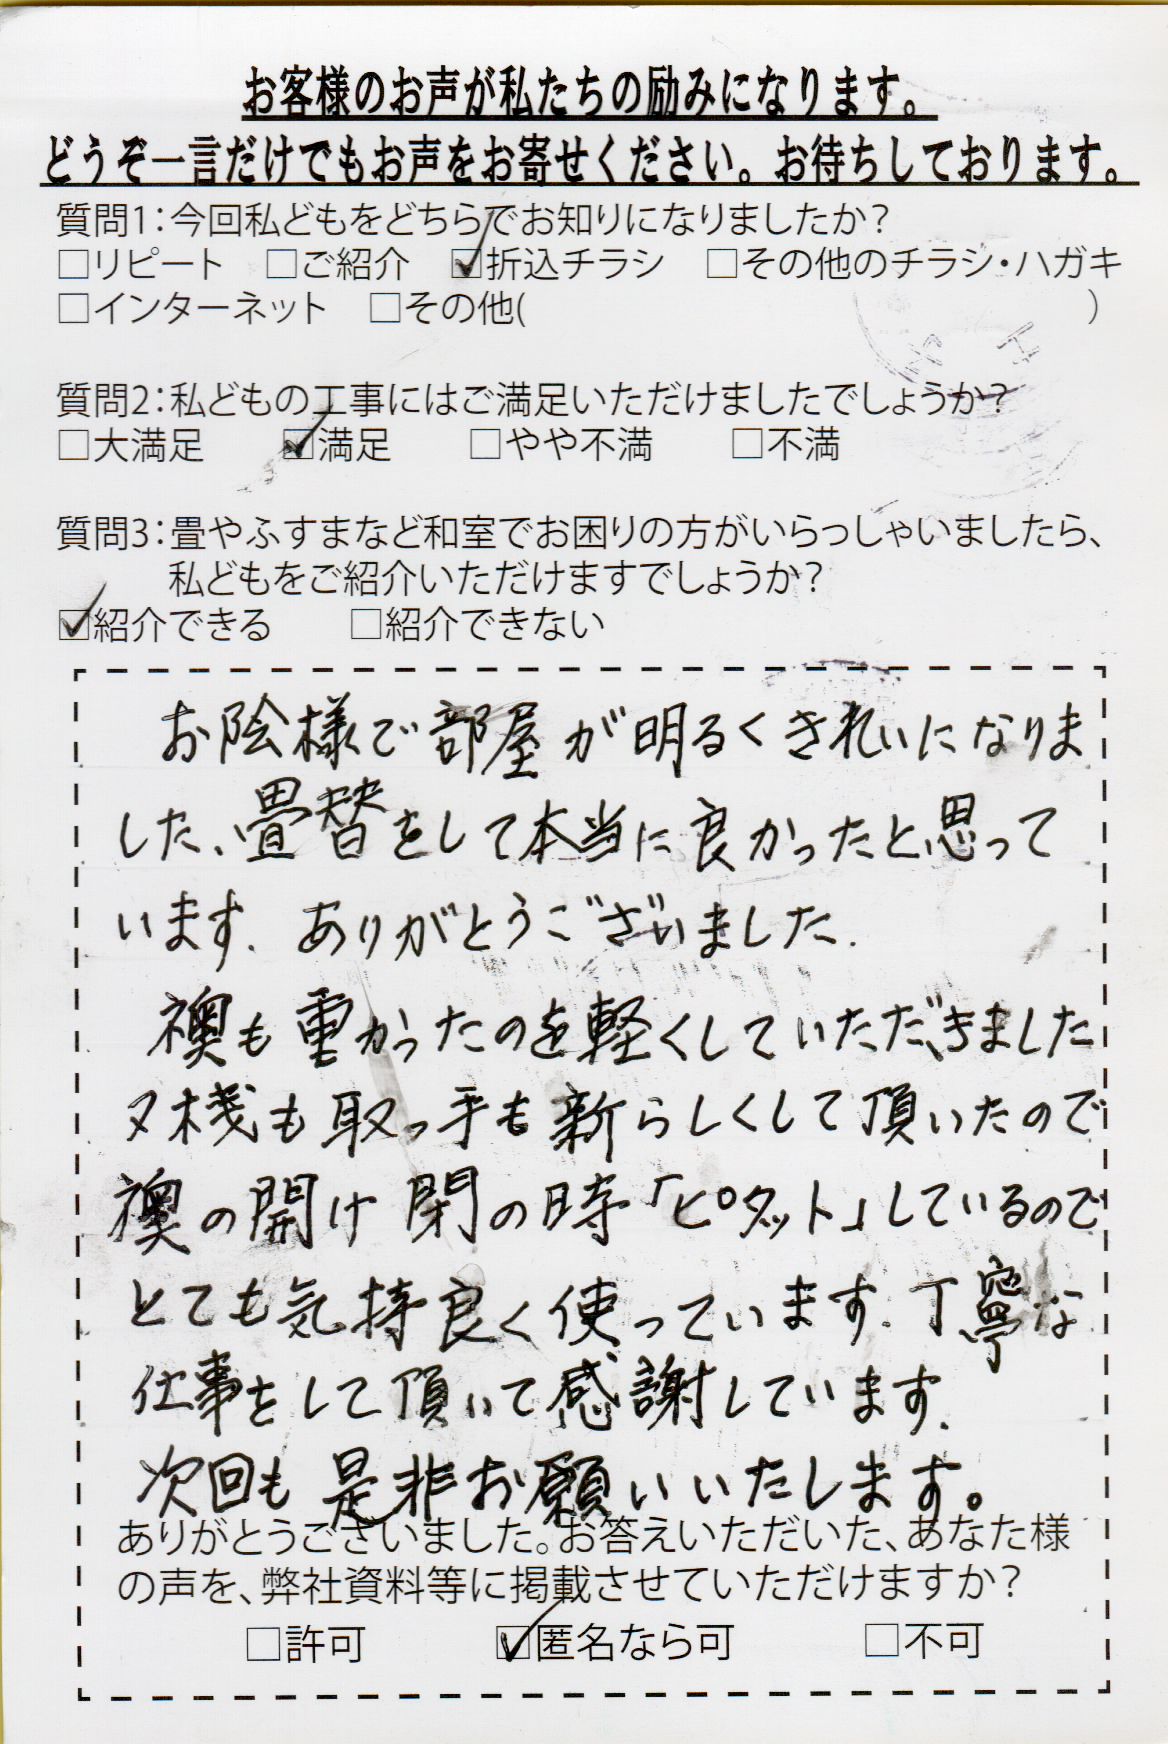 お客様のお声が私たちの励みになります。
どうぞ一言だけでもお声をお寄せください。お待ちしております。
質問1:今回私どもをどちらでお知りになりましたか?
□リピート □ご紹介 ☑折込チラシ □その他のチラシ・ハガキ
□インターネット □その他( )
質問2:私どもの工事にはご満足いただけましたでしょうか?
□大満足 ☑満足 □やや不満 □不満
質問3:畳やふすまなど和室でお困りの方がいらっしゃいましたら、
私どもをご紹介いただけますでしょうか?
☑紹介できる □紹介できない
お陰様で部屋が明るくきれいになりま
した、畳替をして本当に良かったと思って
います. ありがとうございました.
襖も重かったのを軽くしていただきました
又桟も取っ手も新らしくして頂いたので
襖の開け閉の時「ピタット」しているので
とても気持良く使っています. 丁寧な
仕事をして頂いて感謝しています.
次回も是非お願いいたします。
ありがとうございました。お答えいただいた、あなた様
の声を、弊社資料等に掲載させていただけますか?
□許可 ☑匿名なら可 □不可